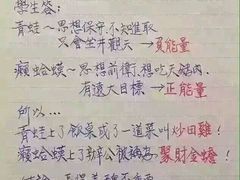 學生答:
青蛙~思想保守,不知進取
只會坐井觀天→負能量
癩蛤蟆~思想前衛,想吃天鵝肉
有遠大目標→正能量
所以…
青蛙上了飯桌成了一道菜叫炒田雞!
癩蛤蟆上了辦公被稱為聚財金蟾!